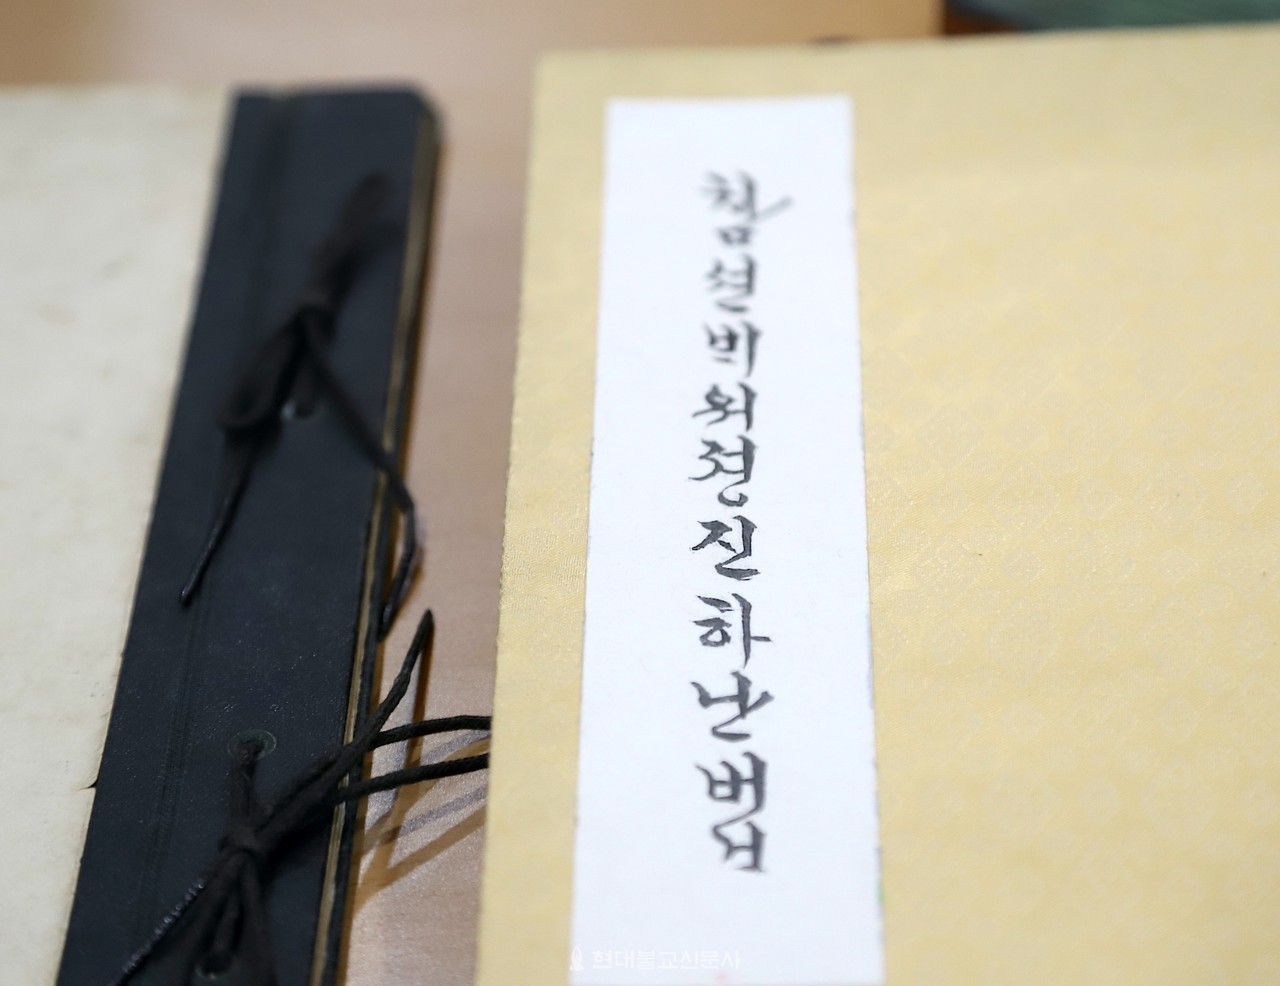 참션배워정진하난법
현대불교신문사